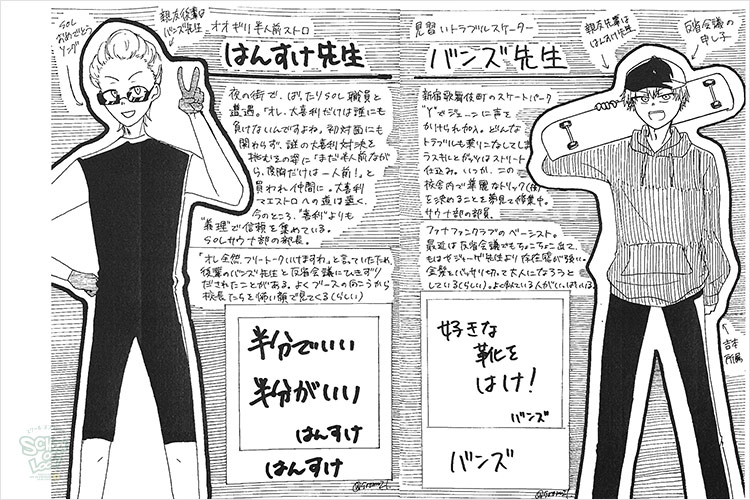 SOL
おめでとう
ソング
親友後輩は
バンズ先生
オオギリ半人前ストロ
はんすけ先生
夜の街で、ばったりSOL職員と
遭遇。「オレ、大喜利だけは誰にも
負けないんですよね。初対面にも
関わらず、謎の大喜利対決を
挑むその姿に「まだ半人前ながら
、度胸だけは一人前!」と
買われ仲間に。大喜利
マエストロへの道は遠く、
今のところ、"喜利"よりも
"義理"で信頼を集めている。
SOLサウナ部の部長。
「オレ全然、フリートークいけますわ」と言っていたわりに
後輩のバンズ先生と反省会議にひきずり
だされたことがある。よくブースの向こうから
校長たちを怖い顔で見てくる(らしい)
半分でいい
半分がいい
はんすけ
はんすけ
見習いトラブルスケーター
バンズ先生
親友先輩は
はんすけ先生
反省会議の
申し子
新宿歌舞伎町のスケートパーク
で
に声を
かけられ加入。どんな
トラブルも乗りこなしてしま
うスキルとガッツはストリート
仕込み。いつか、この
校舎内で華麗なトリック(技)
を決めることを夢見て修業中。
サウナ部の部員。
ファナファンクラブのベーシスト。
最近は反省会議でもちょこちょこ出て
もはやジョージ先生より存在感が強い。
金髪をバッサリ切って大人になろうと
している(らしい)。よく似ている人がいっぱいいる。
好きな
靴を
はけ!
バンズ
バンズ
吉本
所属